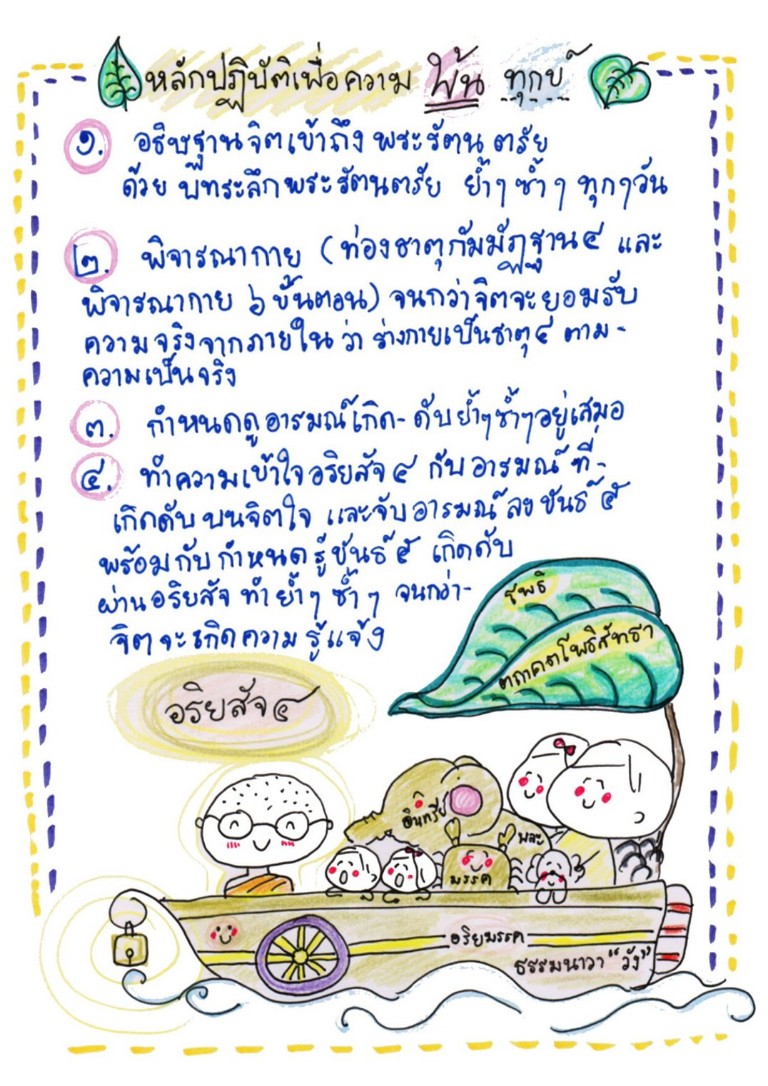 หลักปฏิบัติเพื่อความ พ้น ทุกข์
๑. อธิษฐานจิตเข้าถึงพระรัตนตรัย
ด้วย บทระลึกพระรัตนตรัย ย้ำๆ ซ้ำๆ ทุกๆวัน
๒. พิจารณากาย (ท่องธาตุกัมมัฏฐาน ๔ และ
พิจารณากาย ๖ ขั้นตอน) จนกว่าจิตจะยอมรับ
ความจริงจากภายใน ว่า ร่างกายเป็นธาตุ ๔ ตาม-
ความเป็นจริง
๓. กำหนดดูอารมณ์เกิด-ดับย้ำๆซ้ำๆอยู่เสมอ
๔. ทำความเข้าใจอริยสัจ ๔ กับอารมณ์ที่-
เกิดดับบนจิตใจ และจับอารมณ์ลงขันธ์ ๕
พร้อมกับกำหนดรู้ขันธ์ ๕ เกิดดับ
ผ่านอริยสัจ ทำย้ำๆ ซ้ำๆ จนกว่า-
จิตจะเกิดความรู้แจ้ง
โพธิ
ตถาคตโพธิสัทธา
อริยสัจ ๔
อินทรีย์
พละ
มรรค
อริยมรรค
ธรรมนาวา "วัง"